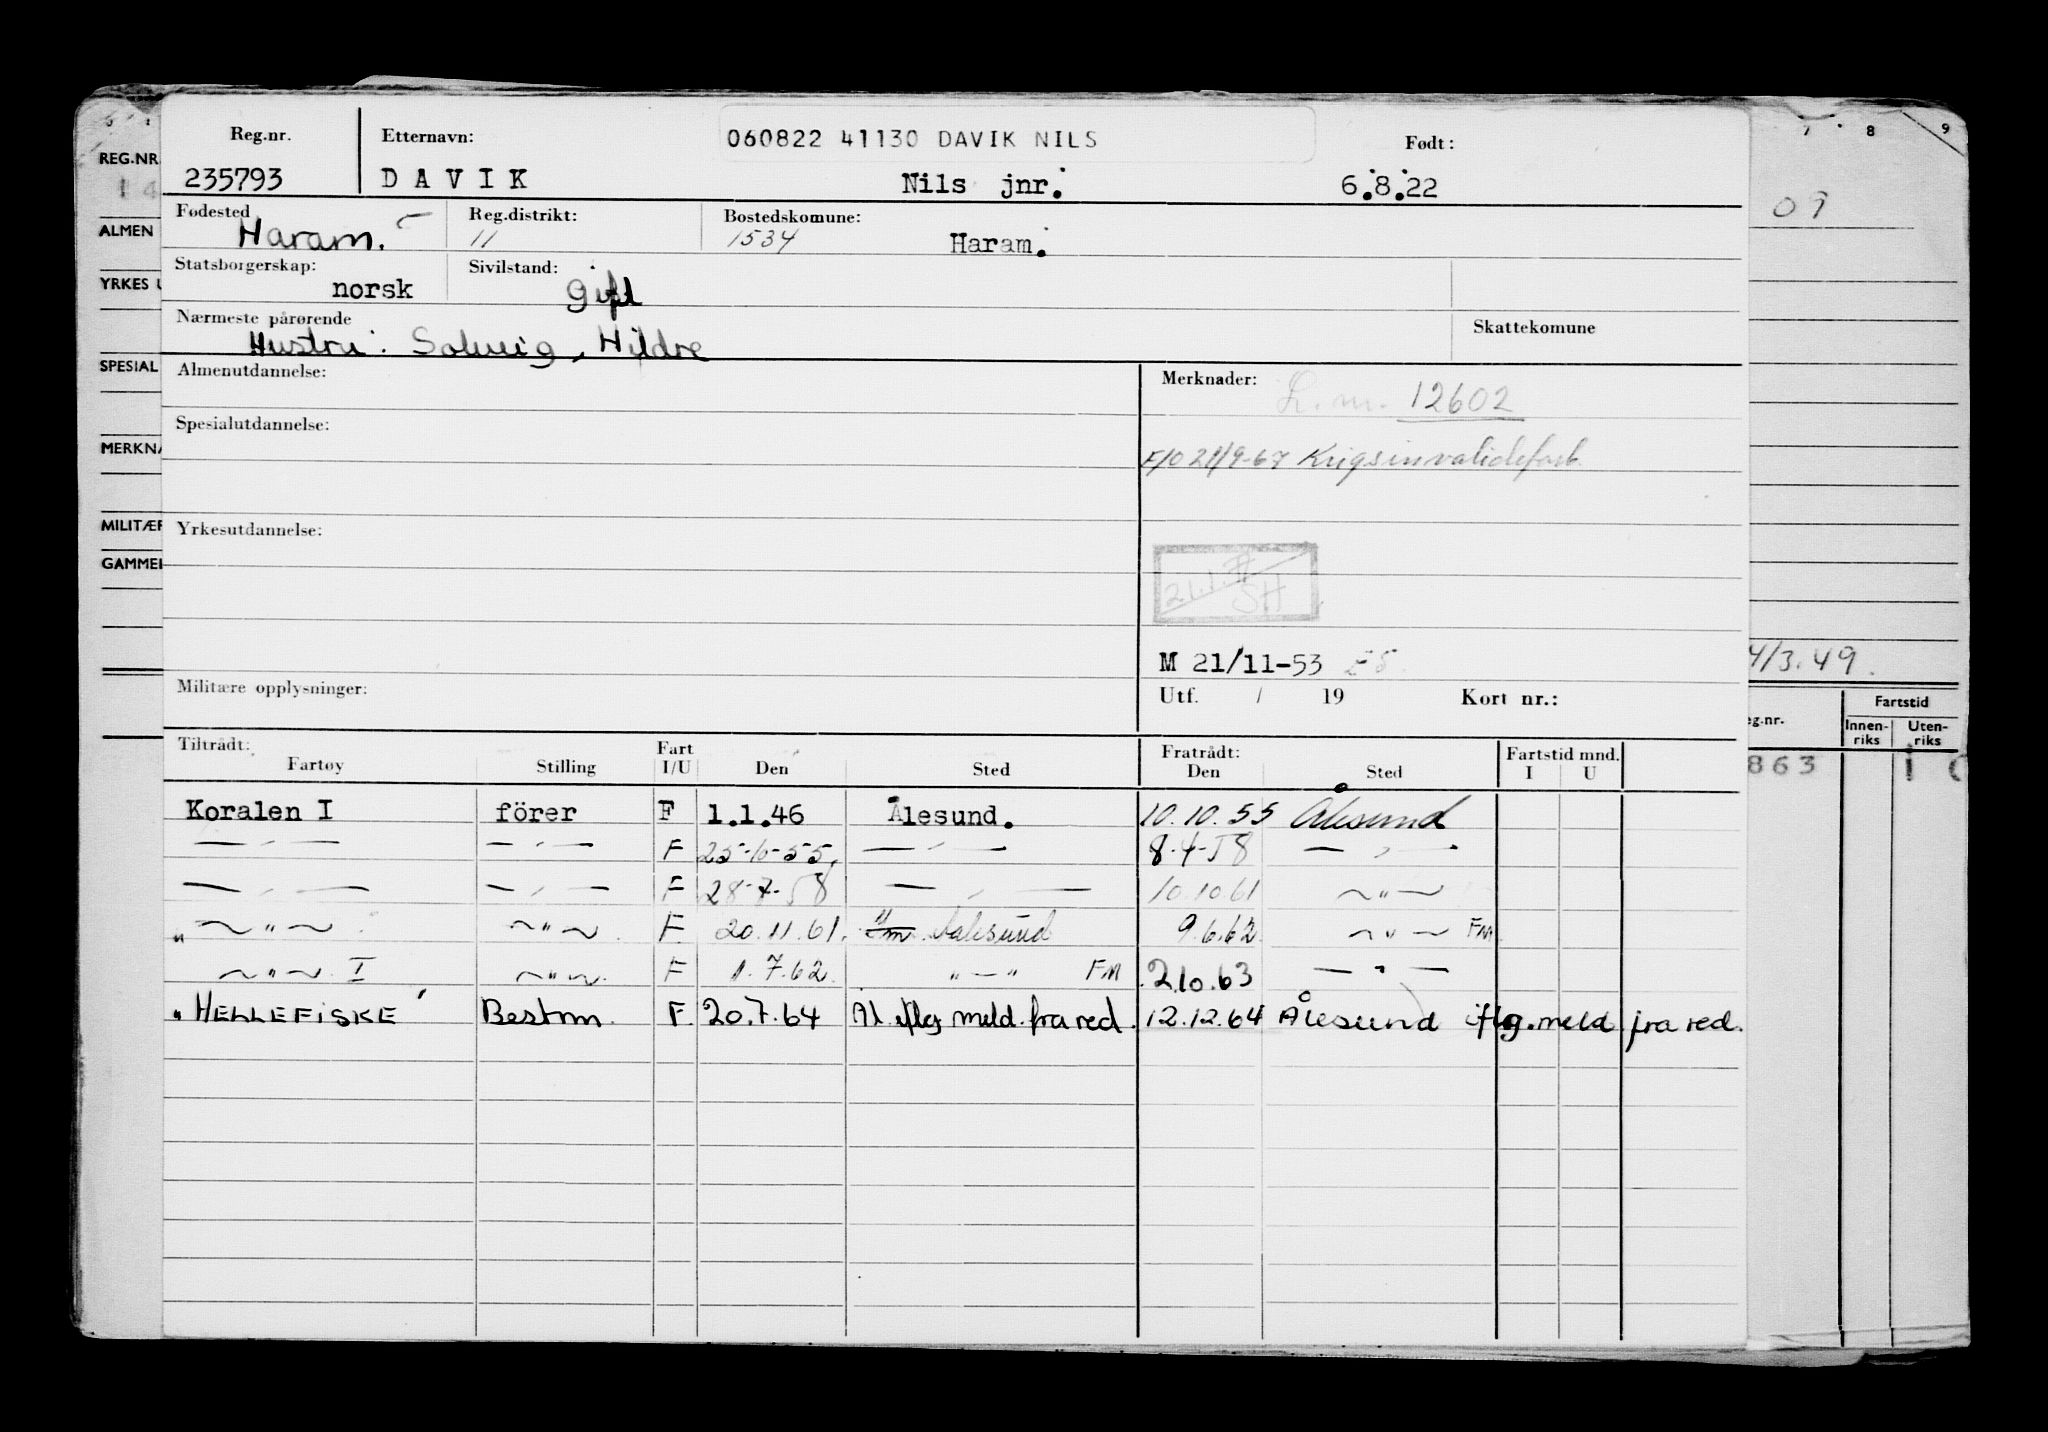 Reg.nr. Etternavn: 060822 41130 DAVIK NILS Født:
235793 DAVIK Nils jnr. 6.8.22
Fødested Reg.distrikt: Bostedskomune:
Haram. 11 1534 Haram.
Statsborgerskap: Sivilstand:
norsk Gift
Nærmeste pårørende Skattekomune
Hustru: Solveig, Hildre
Almenutdannelse: Merknader:
12602
Spesialutdannelse:
F/O 21/9-67 Krigsinvalideforb.
Yrkesutdannelse:
SH
M 21/11-53
Militære opplysninger: Utf. / 19 Kort nr.:
Tiltrådt: Fart Fratrådt: Fartstid mnd.
Fartøy Stilling I/U Den Sted Den Sted I U
Koralen I förer F 1.1.46 Ålesund. 10.10.55 Ålesund
— " — — " — F 25-10-55. — " — 8-4-58 — " —
— " — — " — F 28-7-58 — " — 10.10.61 ~ " ~
" ~ " ~ ~ " ~ F 20.11.61. Aalesund 9.6.62 ~ " ~ FM
~ " ~ I ~ " ~ F 1.7.62 " — " FM 2.10.63 — " —
"HELLEFISKE" Bestm. F. 20.7.64 Ål. iflg meld. fra red. 12.12.64 Ålesund iflg. meld. fra red.
REG.NR.
14
ALMEN
YRKES U
SPESIAL
MERKNA
MILITÆR
GAMMEL
7 8 9
09
4/3.49.
eg.nr. Fartstid
Innen-riks Uten-riks
863 1